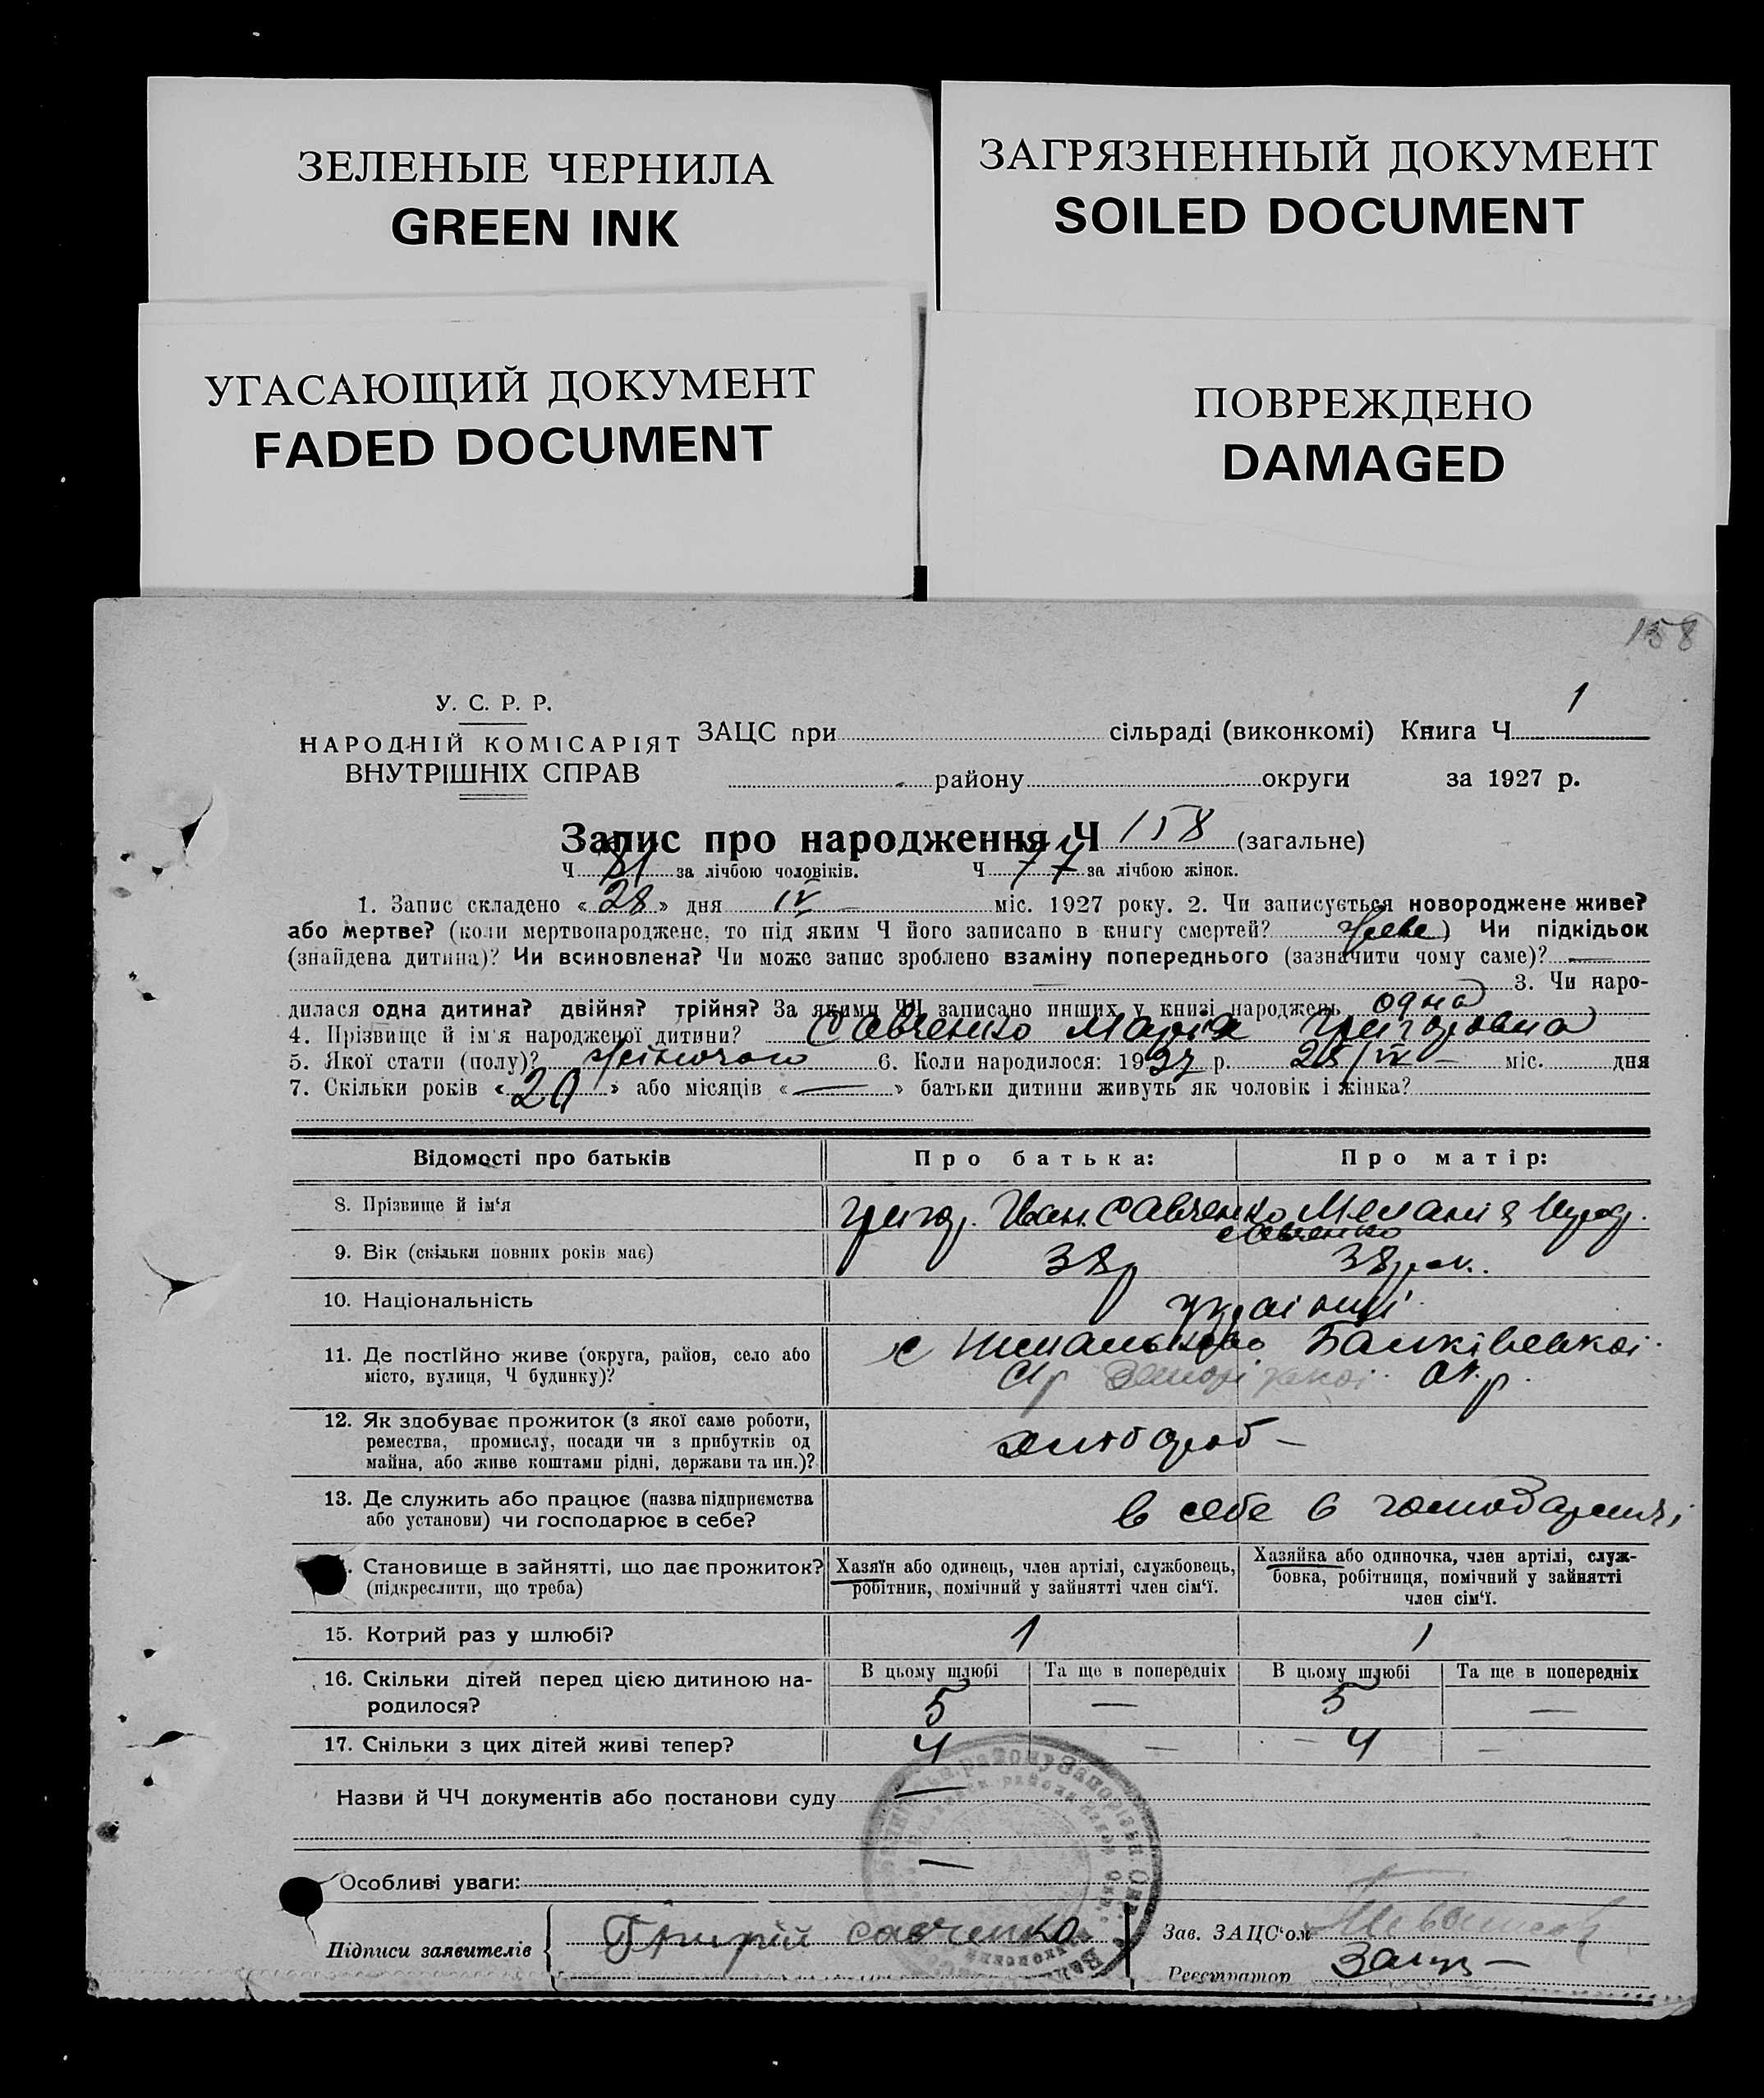 ЗЕЛЕНЫЕ ЧЕРНИЛА
GREEN INK
ЗАГРЯЗНЕННЫЙ ДОКУМЕНТ
SOILED DOCUMENT
УГАСАЮЩИЙ ДОКУМЕНТ
FADED DOCUMENT
ПОВРЕЖДЕНО
DAMAGED
158
У. С. Р. Р.
НАРОДНІЙ КОМІСАРІЯТ
ВНУТРІШНІХ СПРАВ
ЗАЦС при сільраді (виконкомі) Книга Ч 1
району округи за 1927 р.
Запис про народження Ч 158 (загальне)
Ч 81 за лічбою чоловіків. Ч 77 за лічбою жінок.
1. Запис складено «28» дня IV міс. 1927 року. 2. Чи записується новороджене живе?
або мертве? (коли мертвонароджене, то під яким Ч його записано в книгу смертей? живе) Чи підкідьок
(знайдена дитина)? Чи всиновлена? Чи може запис зроблено взаміну попереднього (зазначити чому саме)? —
— 3. Чи наро-
дилася одна дитина? двійня? трійня? За якими ЧЧ записано инших у книзі народжень одна
4. Прізвище й ім'я народженої дитини? Савченко Марія Григоровна
5. Якої стати (полу)? жіночого 6. Коли народилося: 1927 р. 25/IV — міс. дня
7. Скільки років «20» або місяців «—» батьки дитини живуть як чоловік і жінка?
Відомості про батьків
Про батька:
Про матір:
8. Прізвище й ім'я
Григор. Іван. Савченко
Меланія
Савченко
9. Вік (скільки повних років має)
38р
38рок.
10. Національність
українці
11. Де постійно живе (округа, район, село або
місто, вулиця, Ч будинку)?
с Балківської
С/р Запорізької Окр.
12. Як здобуває прожиток (з якої саме роботи,
ремества, промислу, посади чи з прибутків од
майна, або живе коштами рідні, держави та ин.)?
хлібороб —
13. Де служить або працює (назва підприємства
або установи) чи господарює в себе?
в себе в господарстві
Становище в зайнятті, що дає прожиток?
(підкреслити, що треба)
Хазяїн або одинець, член артілі, службовець,
робітник, помічний у зайнятті член сім'ї.
Хазяйка або одиночка, член артілі, служ-
бовка, робітниця, помічний у зайнятті
член сім'ї.
15. Котрий раз у шлюбі?
1
1
16. Скільки дітей перед цією дитиною на-
родилося?
В цьому шлюбі
Та ще в попередніх
В цьому шлюбі
Та ще в попередніх
5
—
5
—
17. Скільки з цих дітей живі тепер?
4
—
4
—
Назви й ЧЧ документів або постанови суду —
Особливі уваги: —
Підписи заявителів
Григорій Савченко
Зав. ЗАЦС'ом
Реєстратор